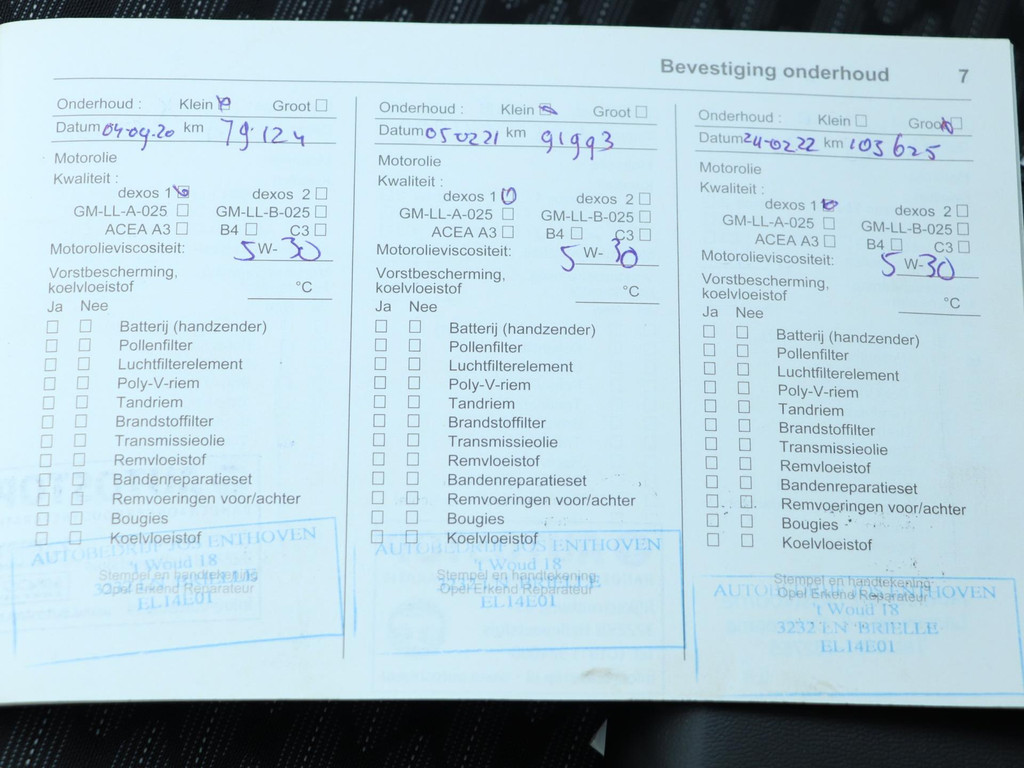 Bevestiging onderhoud 7
Onderhoud : Klein Groot
Datum 04-09-20 km 79.124
Motorolie
Kwaliteit :
dexos 1 dexos 2
GM-LL-A-025 GM-LL-B-025
ACEA A3 B4 C3
Motorolieviscositeit: 5 W- 30
Vorstbescherming,
koelvloeistof °C
Ja Nee
Batterij (handzender)
Pollenfilter
Luchtfilterelement
Poly-V-riem
Tandriem
Brandstoffilter
Transmissieolie
Remvloeistof
Bandenreparatieset
Remvoeringen voor/achter
Bougies
Koelvloeistof
AUTOBEDRIJF JOS ENTHOVEN
't Woud 18
Stempel en handtekening
Opel Erkend Reparateur
EL14E01
Onderhoud : Klein Groot
Datum 050221 km 91993
Motorolie
Kwaliteit :
dexos 1 dexos 2
GM-LL-A-025 GM-LL-B-025
ACEA A3 B4 C3
Motorolieviscositeit: 5 W- 30
Vorstbescherming,
koelvloeistof °C
Ja Nee
Batterij (handzender)
Pollenfilter
Luchtfilterelement
Poly-V-riem
Tandriem
Brandstoffilter
Transmissieolie
Remvloeistof
Bandenreparatieset
Remvoeringen voor/achter
Bougies
Koelvloeistof
AUTOBEDRIJF JOS ENTHOVEN
't Woud 18
Stempel en handtekening
Opel Erkend Reparateur
EL14E01
Onderhoud : Klein Groot
Datum 24-02-22 km 103625
Motorolie
Kwaliteit :
dexos 1 dexos 2
GM-LL-A-025 GM-LL-B-025
ACEA A3 B4 C3
Motorolieviscositeit: 5 W- 30
Vorstbescherming,
koelvloeistof °C
Ja Nee
Batterij (handzender)
Pollenfilter
Luchtfilterelement
Poly-V-riem
Tandriem
Brandstoffilter
Transmissieolie
Remvloeistof
Bandenreparatieset
Remvoeringen voor/achter
Bougies
Koelvloeistof
Stempel en handtekening
AUTOBEDRIJF JOS ENTHOVEN
Opel Erkend Reparateur
't Woud 18
3232 LN BRIELLE
EL14E01